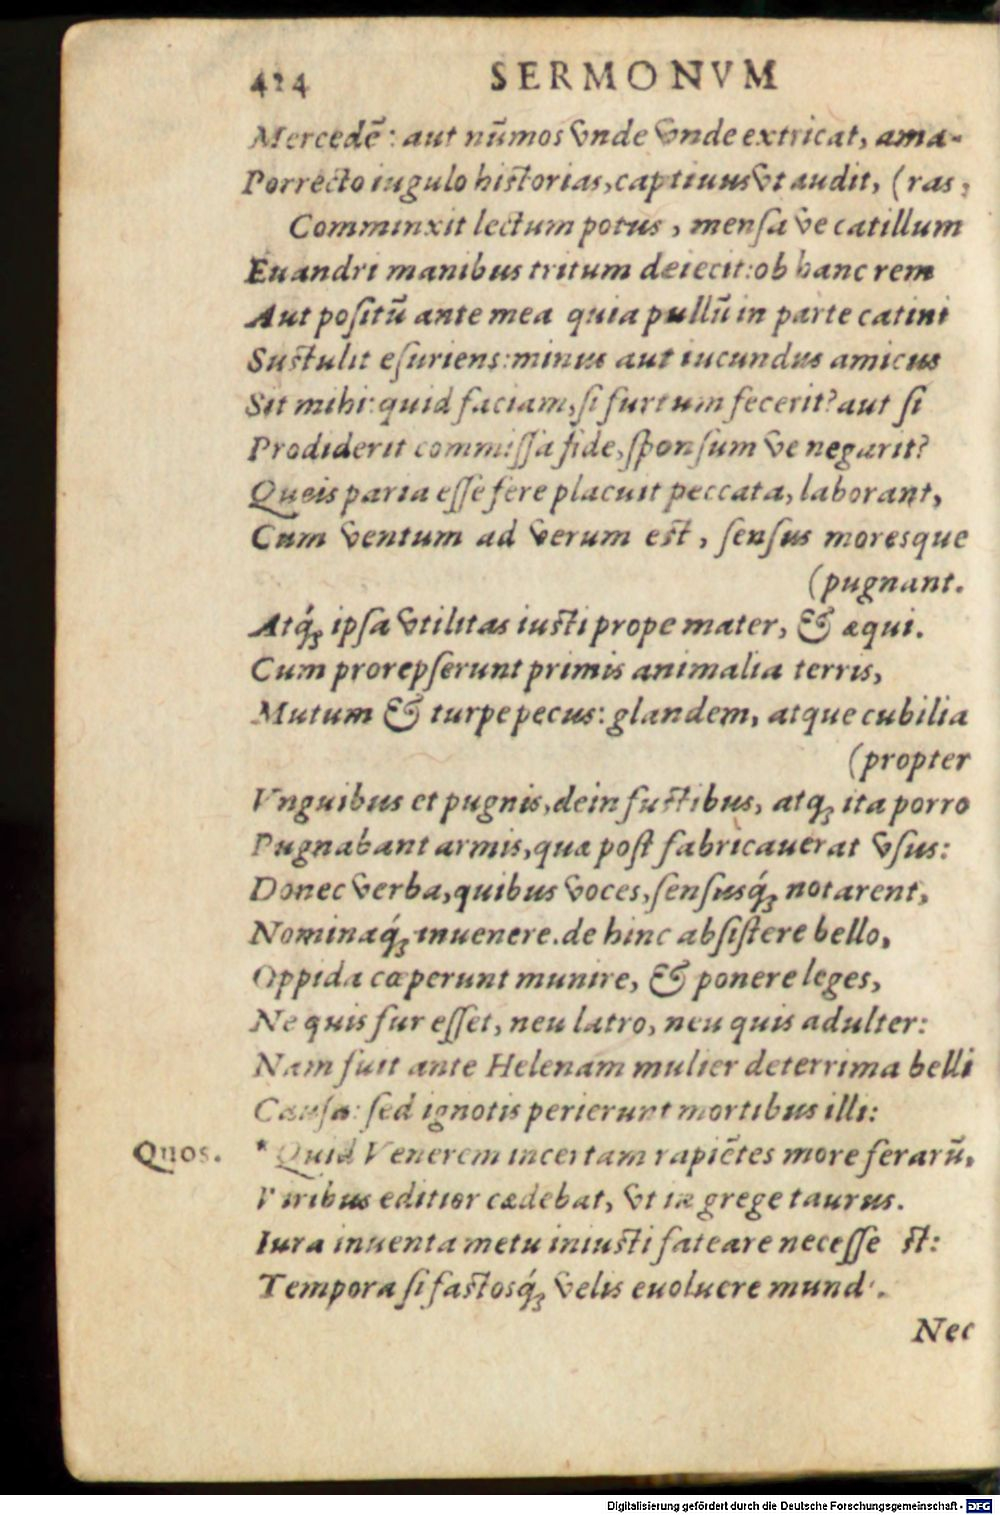 424 SERMONVM
Mercedē: aut nūmos vnde vnde extricat, ama-
Porrecto iugulo historias, captiuus vt audit, (ras,
Comminxit lectum potus, mensa ve catillum
Euandri manibus tritum deiecit: ob hanc rem
Aut positū ante mea quia pullū in parte catini
Sustulit esuriens: minus aut iucundus amicus
Sit mihi: quid faciam, si furtum fecerit? aut si
Prodiderit commissa fide, sponsum ve negarit?
Queis paria esse fere placuit peccata, laborant,
Cum ventum ad verum est, sensus moresque
(pugnant.
Atq́; ipsa vtilitas iusti prope mater, & æqui.
Cum prorepserunt primis animalia terris,
Mutum & turpe pecus: glandem, atque cubilia
(propter
Vnguibus et pugnis, dein fustibus, atq; ita porro
Pugnabant armis, quæ post fabricauerat vsus:
Donec verba, quibus voces, sensusq́; notarent,
Nominaq́; inuenere. de hinc absistere bello,
Oppida cœperunt munire, & ponere leges,
Ne quis fur esset, neu latro, neu quis adulter:
Nam fuit ante Helenam mulier deterrima belli
Causa: sed ignotis perierunt mortibus illi:
Quos. * Quid Venerem incertam rapiētes more ferarū,
Viribus editior cædebat, vt in grege taurus.
Iura inuenta metu iniusti fateare necesse st:
Tempora si fastosq́; velis euoluere mundi.
Nec
Digitalisierung gefördert durch die Deutsche Forschungsgemeinschaft - DFG